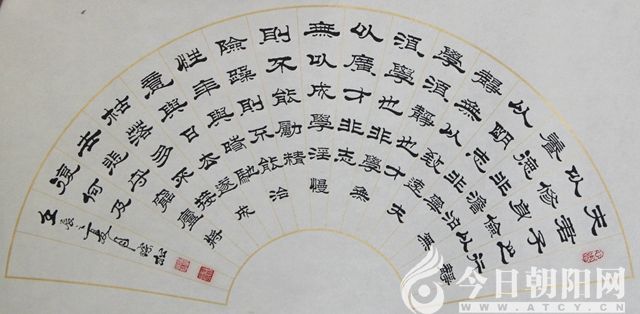 夫君子之行靜
以修身儉以
養德非澹泊無
以明志非寧
靜無以致遠夫
學須靜也才
須學也非學無
以廣才非志
無以成學淫慢
則不能勵精
險躁則不能治
性年與時馳
意與日去遂成
枯落多不接
世悲守窮廬將
復何及
今日朝阳网
WWW.ATCY.CN